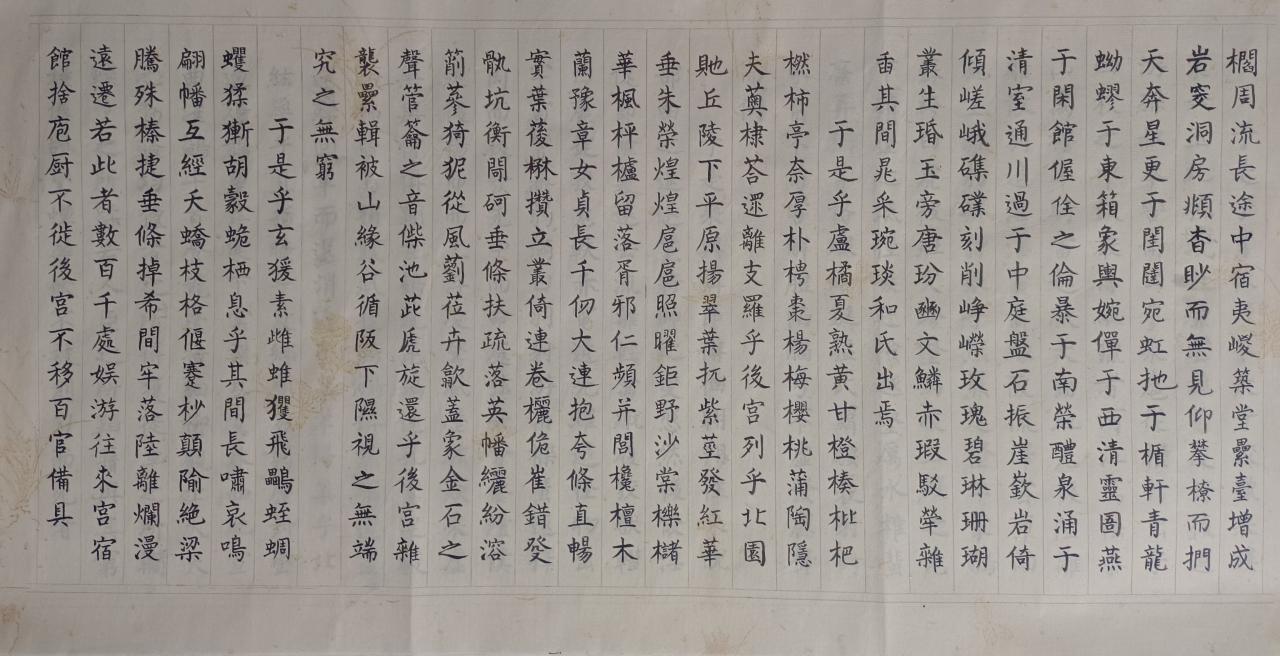 櫩周流長途中宿夷嵕築堂纍臺增成
岩窔洞房頫杳眇而無見仰攀橑而捫
天奔星更于閨闥宛虹扡于楯軒青龍
蚴蟉于東箱象輿婉僤于西清靈圄燕
于閑館偓佺之倫暴于南榮醴泉涌于
清室通川過于中庭盤石振崖嶔岩倚
傾嵯峨磼礏刻削崢嶸玫瑰碧琳珊瑚
叢生瑉玉旁唐玢豳文鱗赤瑕駁犖雜
臿其間晁采琬琰和氏出焉
于是乎盧橘夏熟黃甘橙楱枇杷
橪柿亭奈厚朴梬棗楊梅櫻桃蒲陶隱
夫薁棣荅遝離支羅乎後宮列乎北園
貤丘陵下平原揚翠葉扤紫莖發紅華
垂朱榮煌煌扈扈照曜鉅野沙棠櫟櫧
華楓枰櫨留落胥邪仁頻并閭欃檀木
蘭豫章女貞長千仞大連抱夸條直暢
實葉葰楙攢立叢倚連卷欐佹崔錯癹
骫坑衡閜砢垂條扶疏落英幡纚紛溶
箾蔘猗狔從風藰莅卉歙蓋象金石之
聲管籥之音偨池茈虒旋還乎後宮雜
襲纍輯被山緣谷循阪下隰視之無端
究之無窮
于是乎玄猨素雌蜼玃飛鸓蛭蜩
蠼猱獑胡豰蛫栖息乎其間長嘯哀鳴
翩幡互經夭蟜枝格偃蹇杪顛隃絶梁
騰殊榛捷垂條掉希間牢落陸離爛漫
遠遷若此者數百千處娛游往來宮宿
館捨庖厨不徙後宮不移百官備具